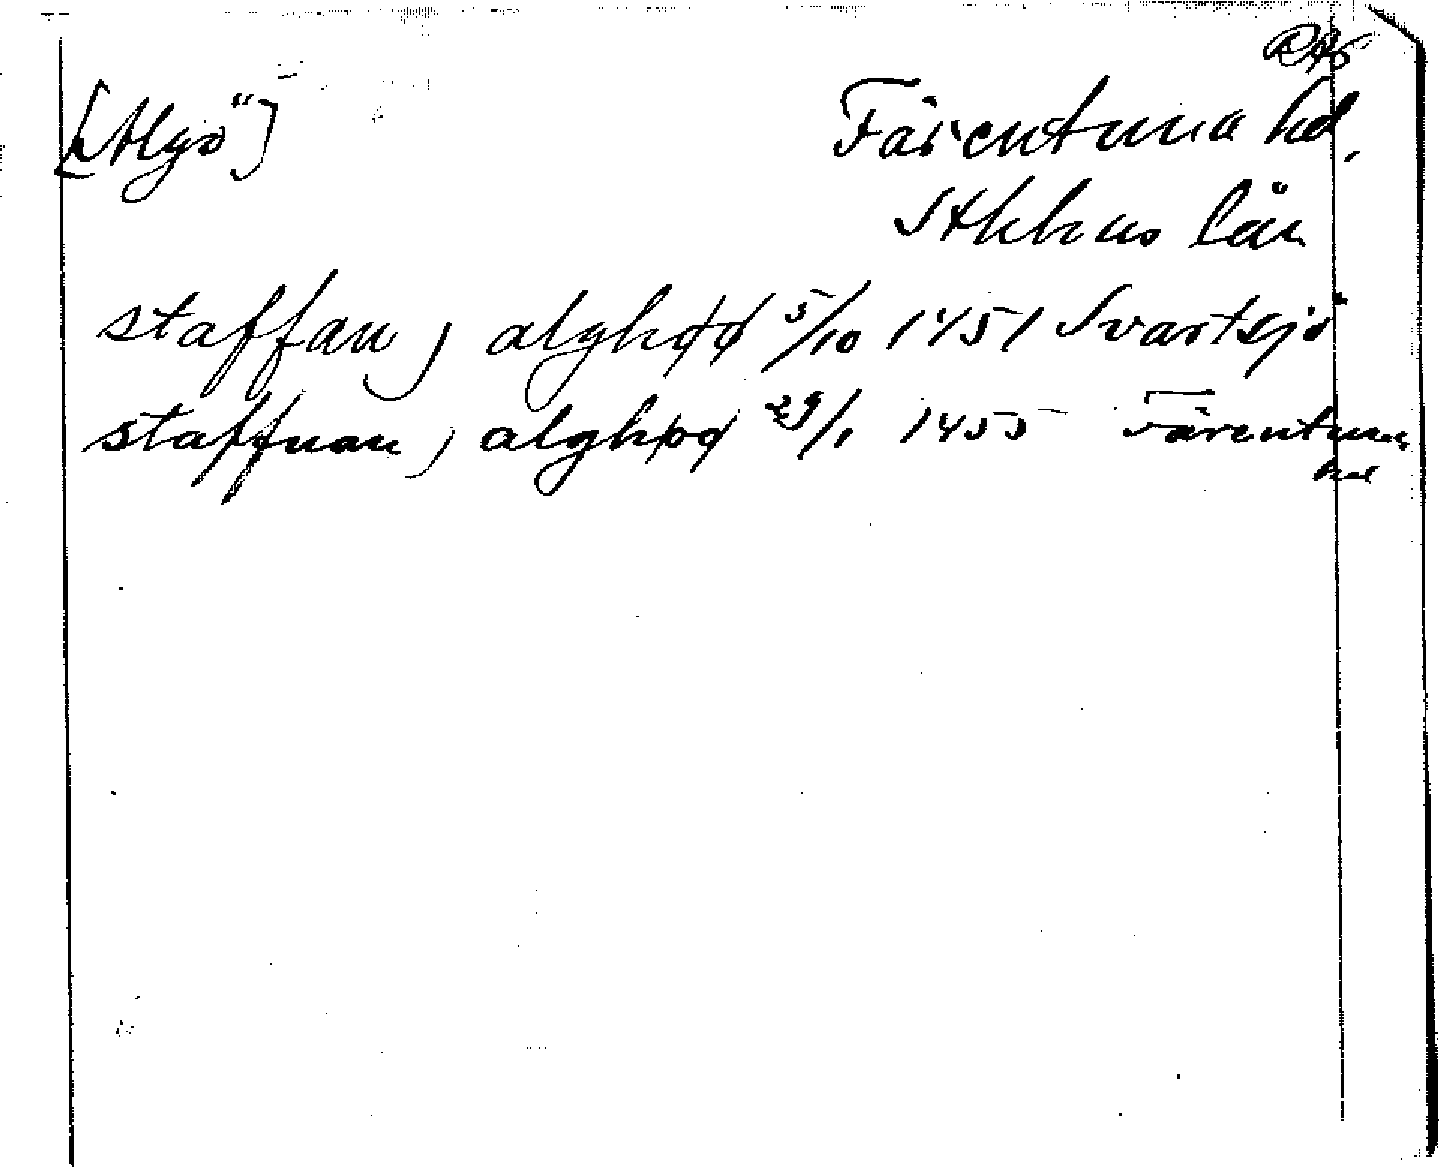 [Algö"] Färentuna hd,
Sthlms län
staffan j alghøø 5/10 1451 Svartsjö
staffuan j alghøø 29/1 1455 Färentuna
hd